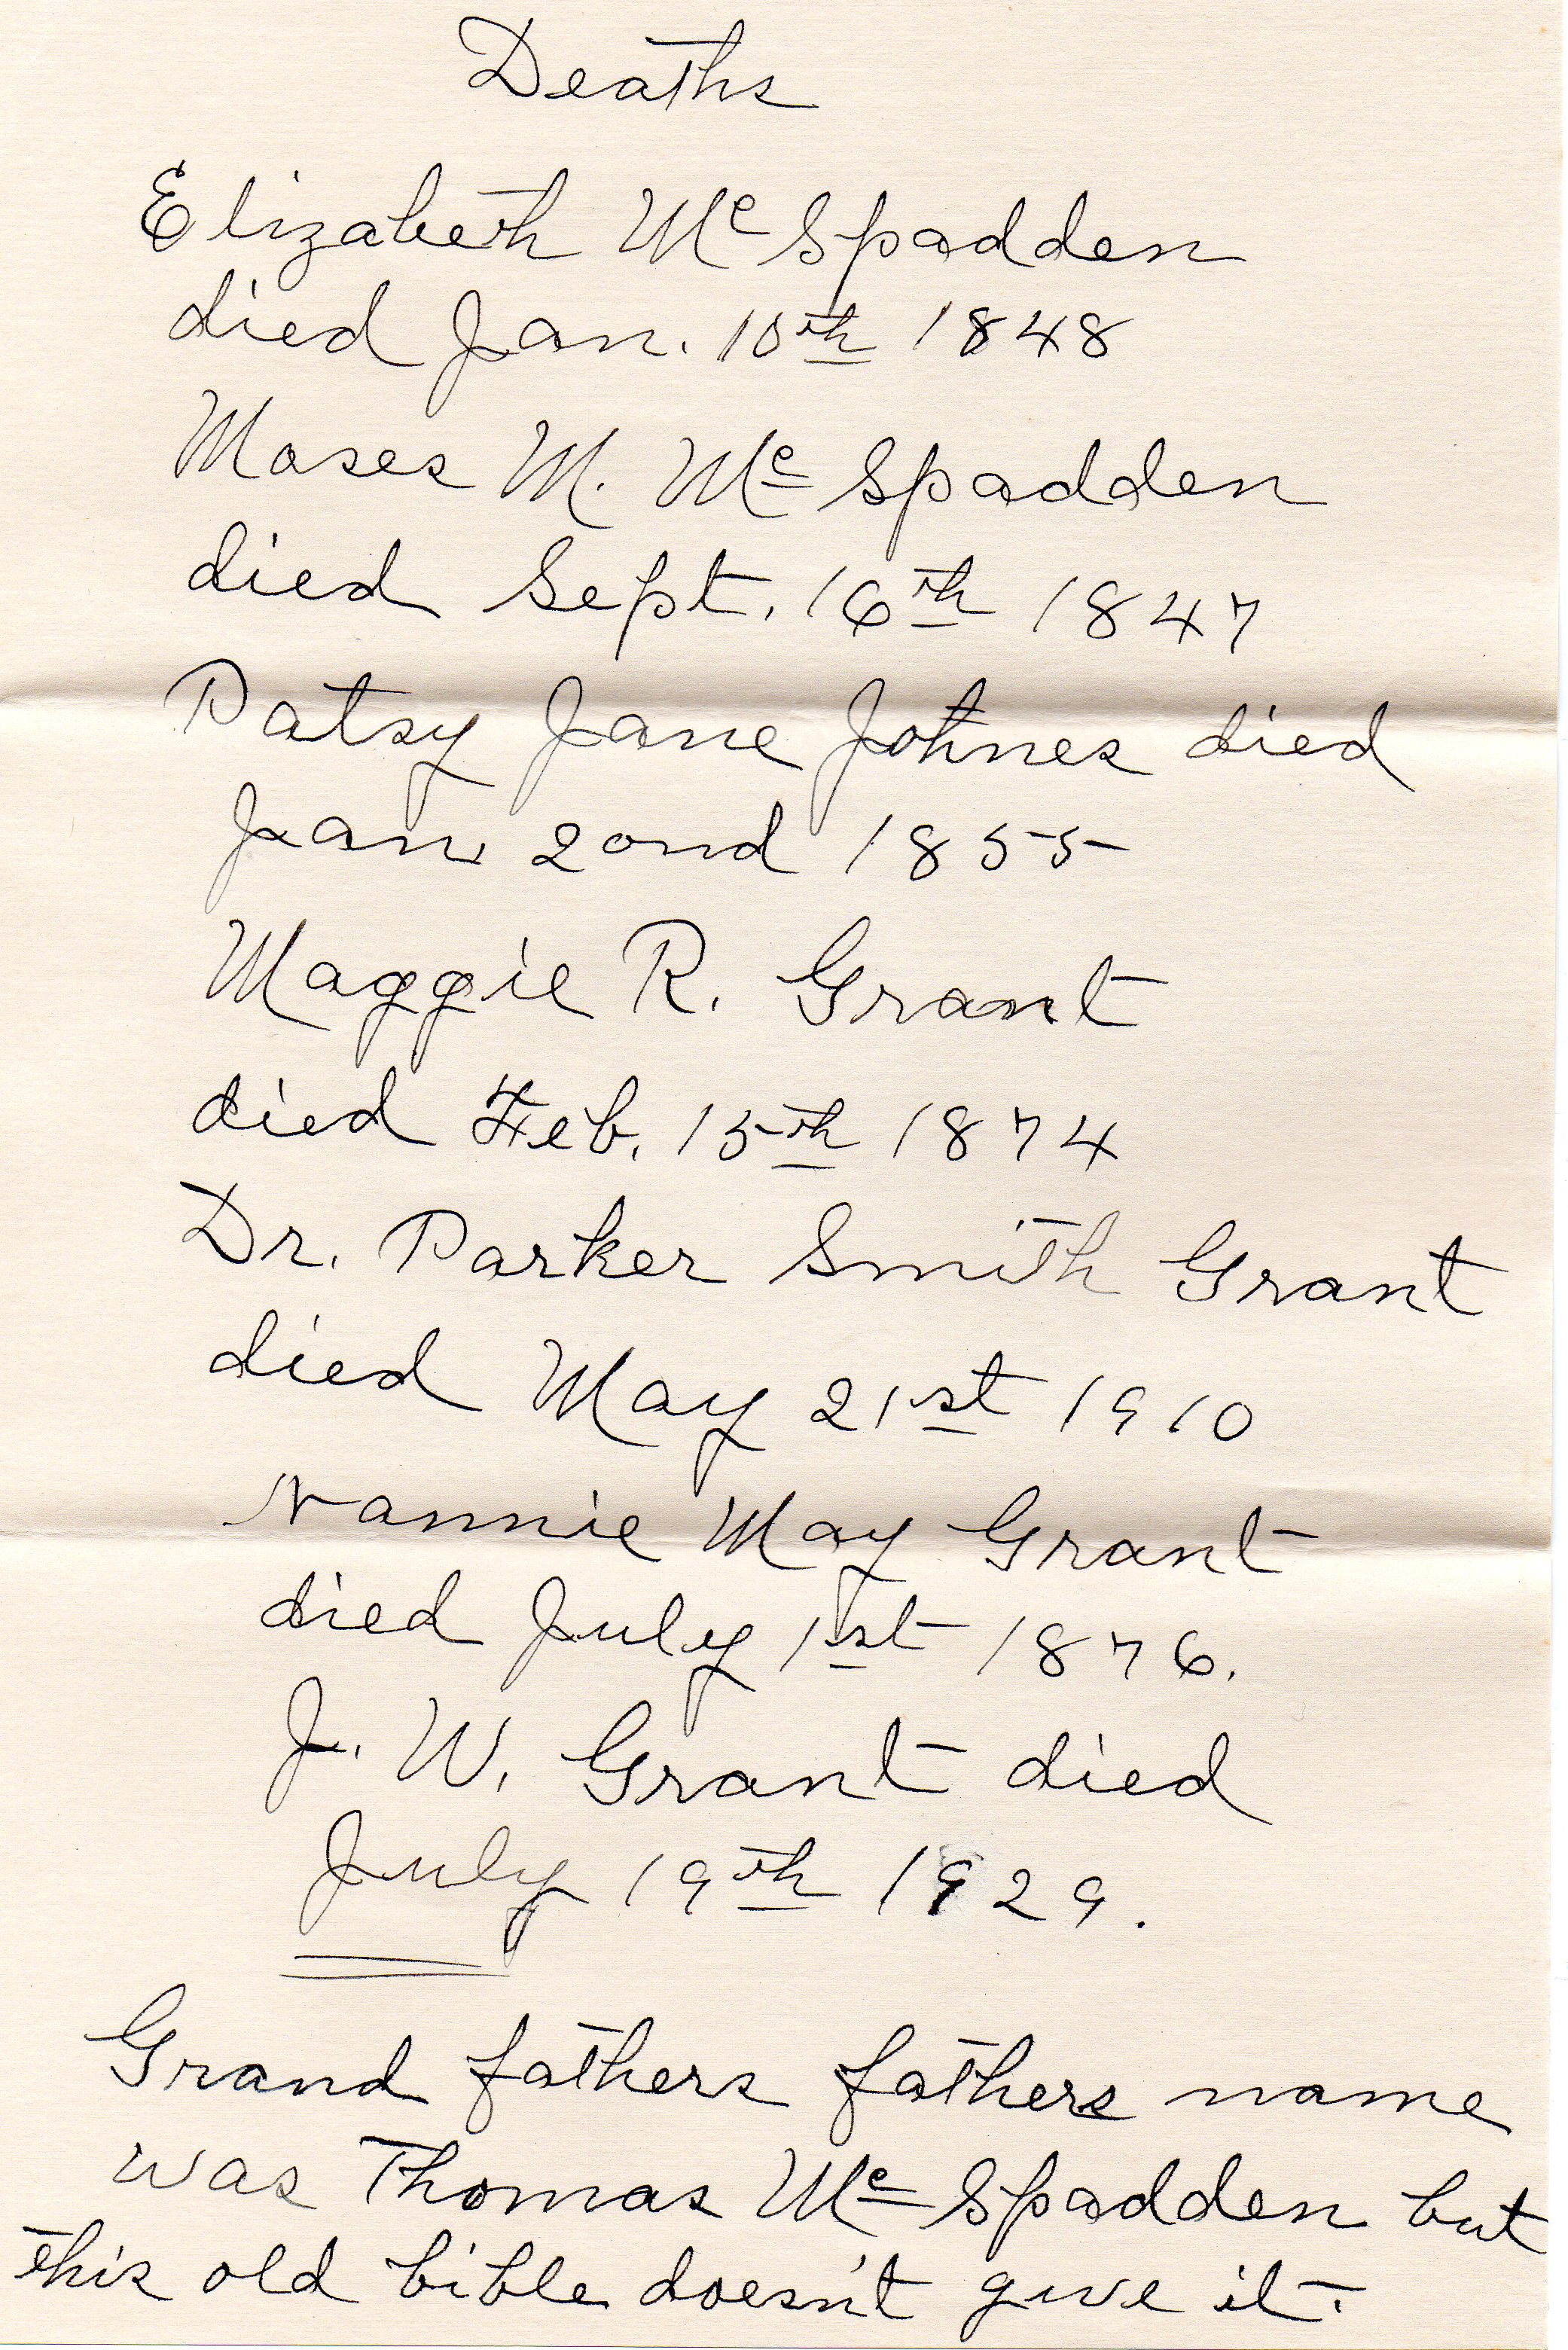 Deaths
Elizabeth Mc Spadden
died Jan. 10th 1848
Moses M. Mc Spadden
died Sept. 16th 1847
Patsy Jane Johnes died
Jan. 22nd 1855
Maggie R. Grant
died Feb. 15th 1874
Dr. Parker Smith Grant
died May 21st 1910
Nannie May Grant
died July 1st 1876.
J. W. Grant died
July 19th 1929.
Grand fathers fathers name
was Thomas Mc Spadden but
this old bible doesn't give it.